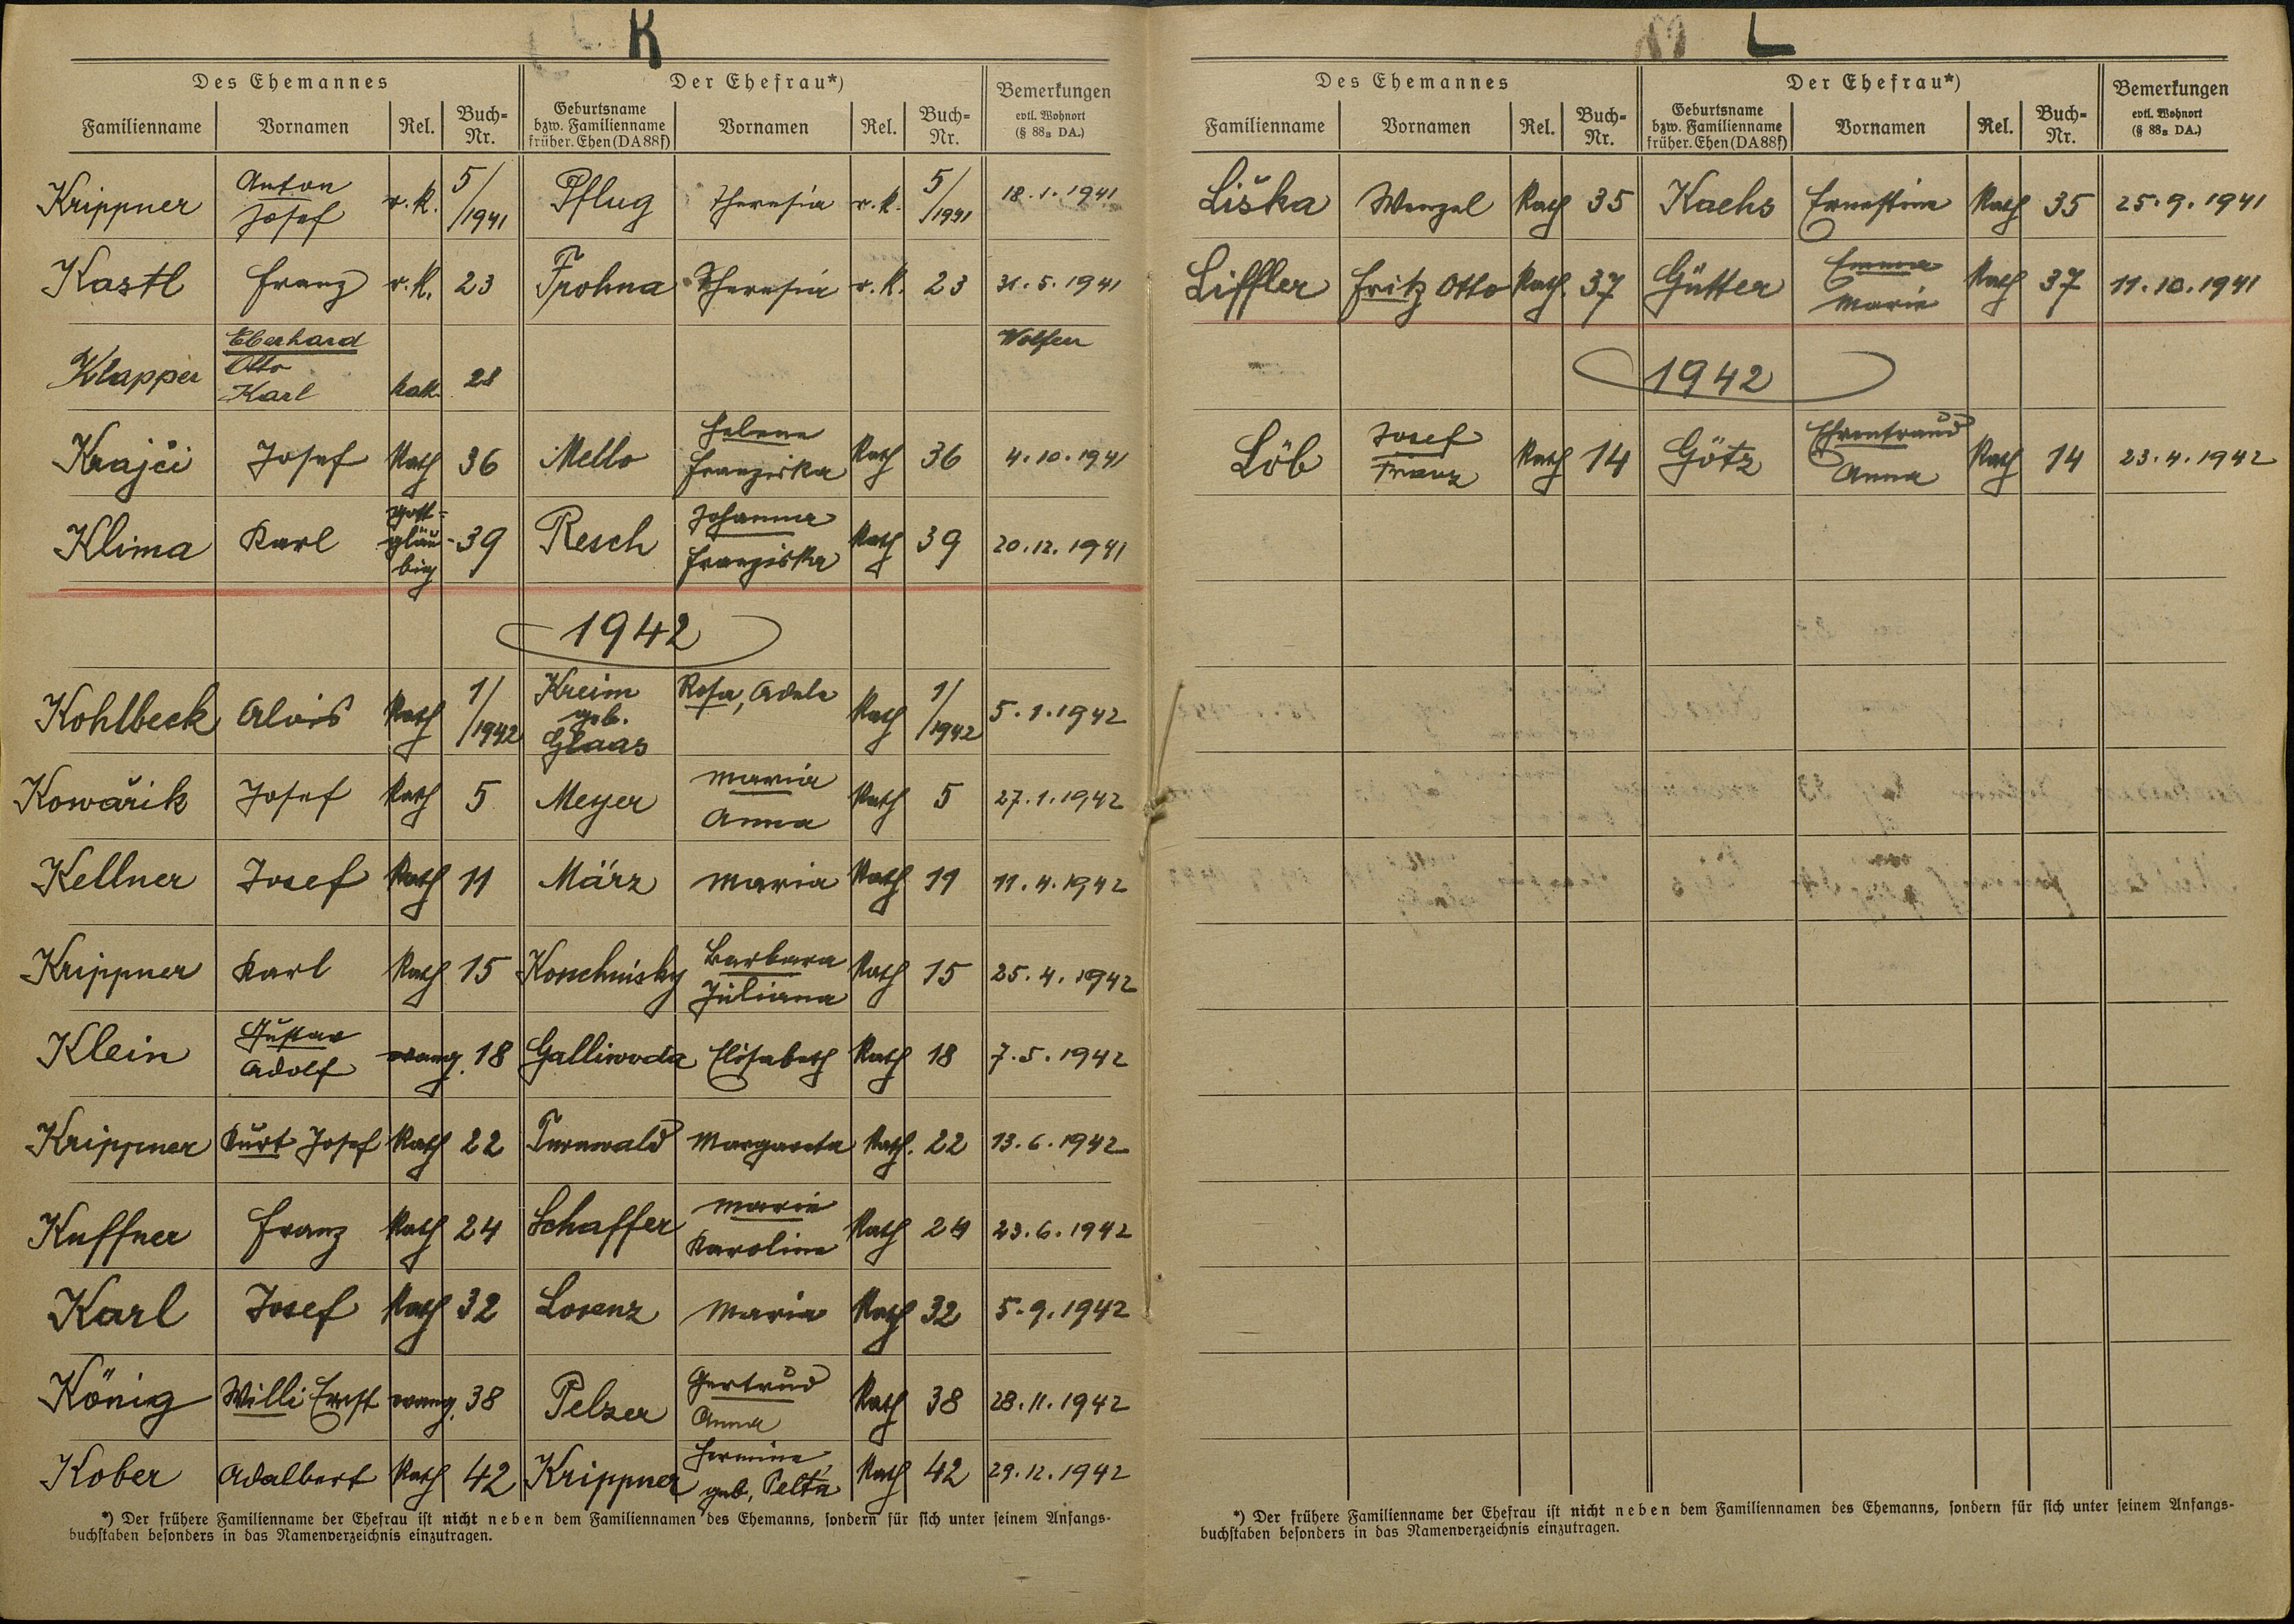 K
Des Ehemannes Der Ehefrau*) Bemerkungen
evtl. Wohnort
(§ 88a DA.)
Familienname Vornamen Rel. Buch-
Nr. Geburtsname
bzw. Familienname
früher. Ehen (DA 88f) Vornamen Rel. Buch-
Nr.
Krippner Anton
Josef r. k. 5/
/1941 Pflug Theresia r. k. 5/
/1941 18. 1. 1941
Kastl Franz r. k. 23 Frohna Theresia r. k. 23 31. 5. 1941
Klapper Eberhard
Otto
Karl kath. 28 Wolfen
Krajči Josef Kath 36 Mello Helene
Franziska Kath 36 4. 10. 1941
Klima Karl gott-
gläu-
big 39 Resch Johanna
Franziska Kath 39 20. 12. 1941
1942
Kohlbeck Alois Kath 1/
/1942 Kreim
geb.
Glaas Rosa, Adele Kath 1/
/1942 5. 1. 1942
Kowařik Josef Kath 5 Meyer Maria
Anna Kath 5 27. 1. 1942
Kellner Josef Kath 11 März Maria Kath 11 11. 4. 1942
Krippner Karl Kath 15 Barbara
Juliana Kath 15 25. 4. 1942
Klein Gustav
Adolf evang. 18 Galliwoda Elisabeth Kath 18 7. 5. 1942
Krippner Kurt Josef Kath 22 Turnwald Margareta Kath. 22 13. 6. 1942
Kuffner Franz Kath 24 Schaffer Marie
Karoline Kath 24 23. 6. 1942
Karl Josef Kath 32 Lorenz Maria Kath 32 5. 9. 1942
König Willi Ernst evang. 38 Pelzer Gertrud
Anna Kath 38 28. 11. 1942
Kober Adalbert Kath 42 Krippner Hermine
geb. Pelta Kath 42 29. 12. 1942
*) Der frühere Familienname der Ehefrau ist nicht neben dem Familiennamen des Ehemanns, sondern für sich unter seinem Anfangs-
buchstaben besonders in das Namenverzeichnis einzutragen.
L
Des Ehemannes Der Ehefrau*) Bemerkungen
evtl. Wohnort
(§ 88a DA.)
Familienname Vornamen Rel. Buch-
Nr. Geburtsname
bzw. Familienname
früher. Ehen (DA 88f) Vornamen Rel. Buch-
Nr.
Liška Wenzel Kath 35 Kachs Ernestine Kath 35 25. 9. 1941
Liffler Fritz Otto Kath. 37 Gütter Emma
Marie Kath 37 11. 10. 1941
1942
Löb Josef
Franz Kath 14 Götz Ehrentraud
Anna Kath 14 23. 4. 1942
*) Der frühere Familienname der Ehefrau ist nicht neben dem Familiennamen des Ehemanns, sondern für sich unter seinem Anfangs-
buchstaben besonders in das Namenverzeichnis einzutragen.